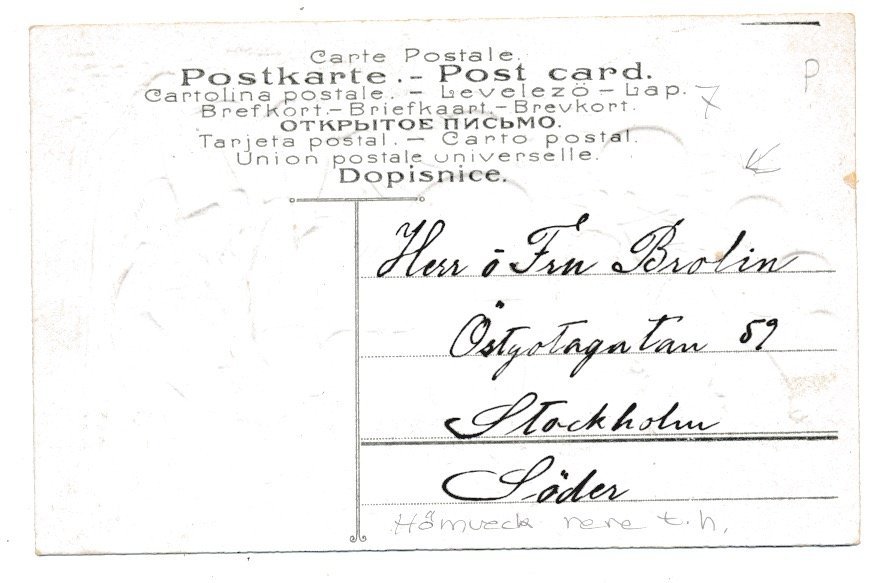 Carte Postale.
Postkarte.- Post card.
Cartolina postale. - Levelezö - Lap.
Brefkort.- Briefkaart.- Brevkort.
ОТКРЫТОЕ ПИСЬМО.
Tarjeta postal. - Carto postal.
Union postale universelle.
Dopisnice.
P
Herr o Fru Brolin
Östgötagatan 59
Stockholm
Söder
t.h.